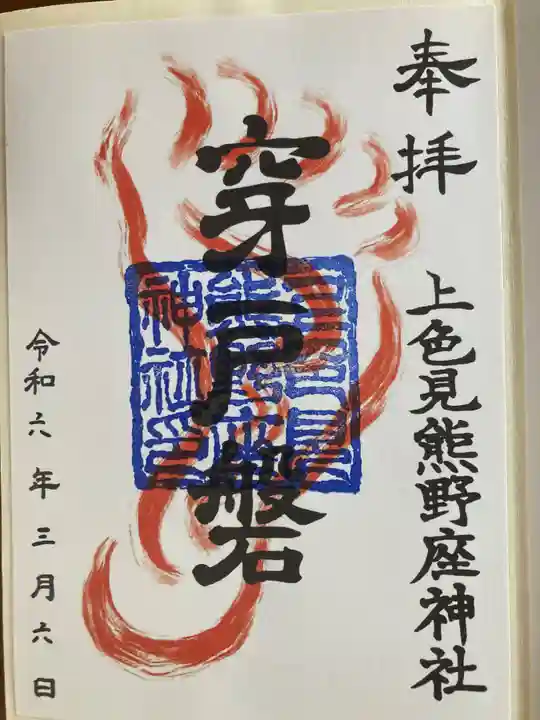 奉拝
上色見熊野座神社
穿戸磐
上色見熊野座神社印
令和六年三月六日